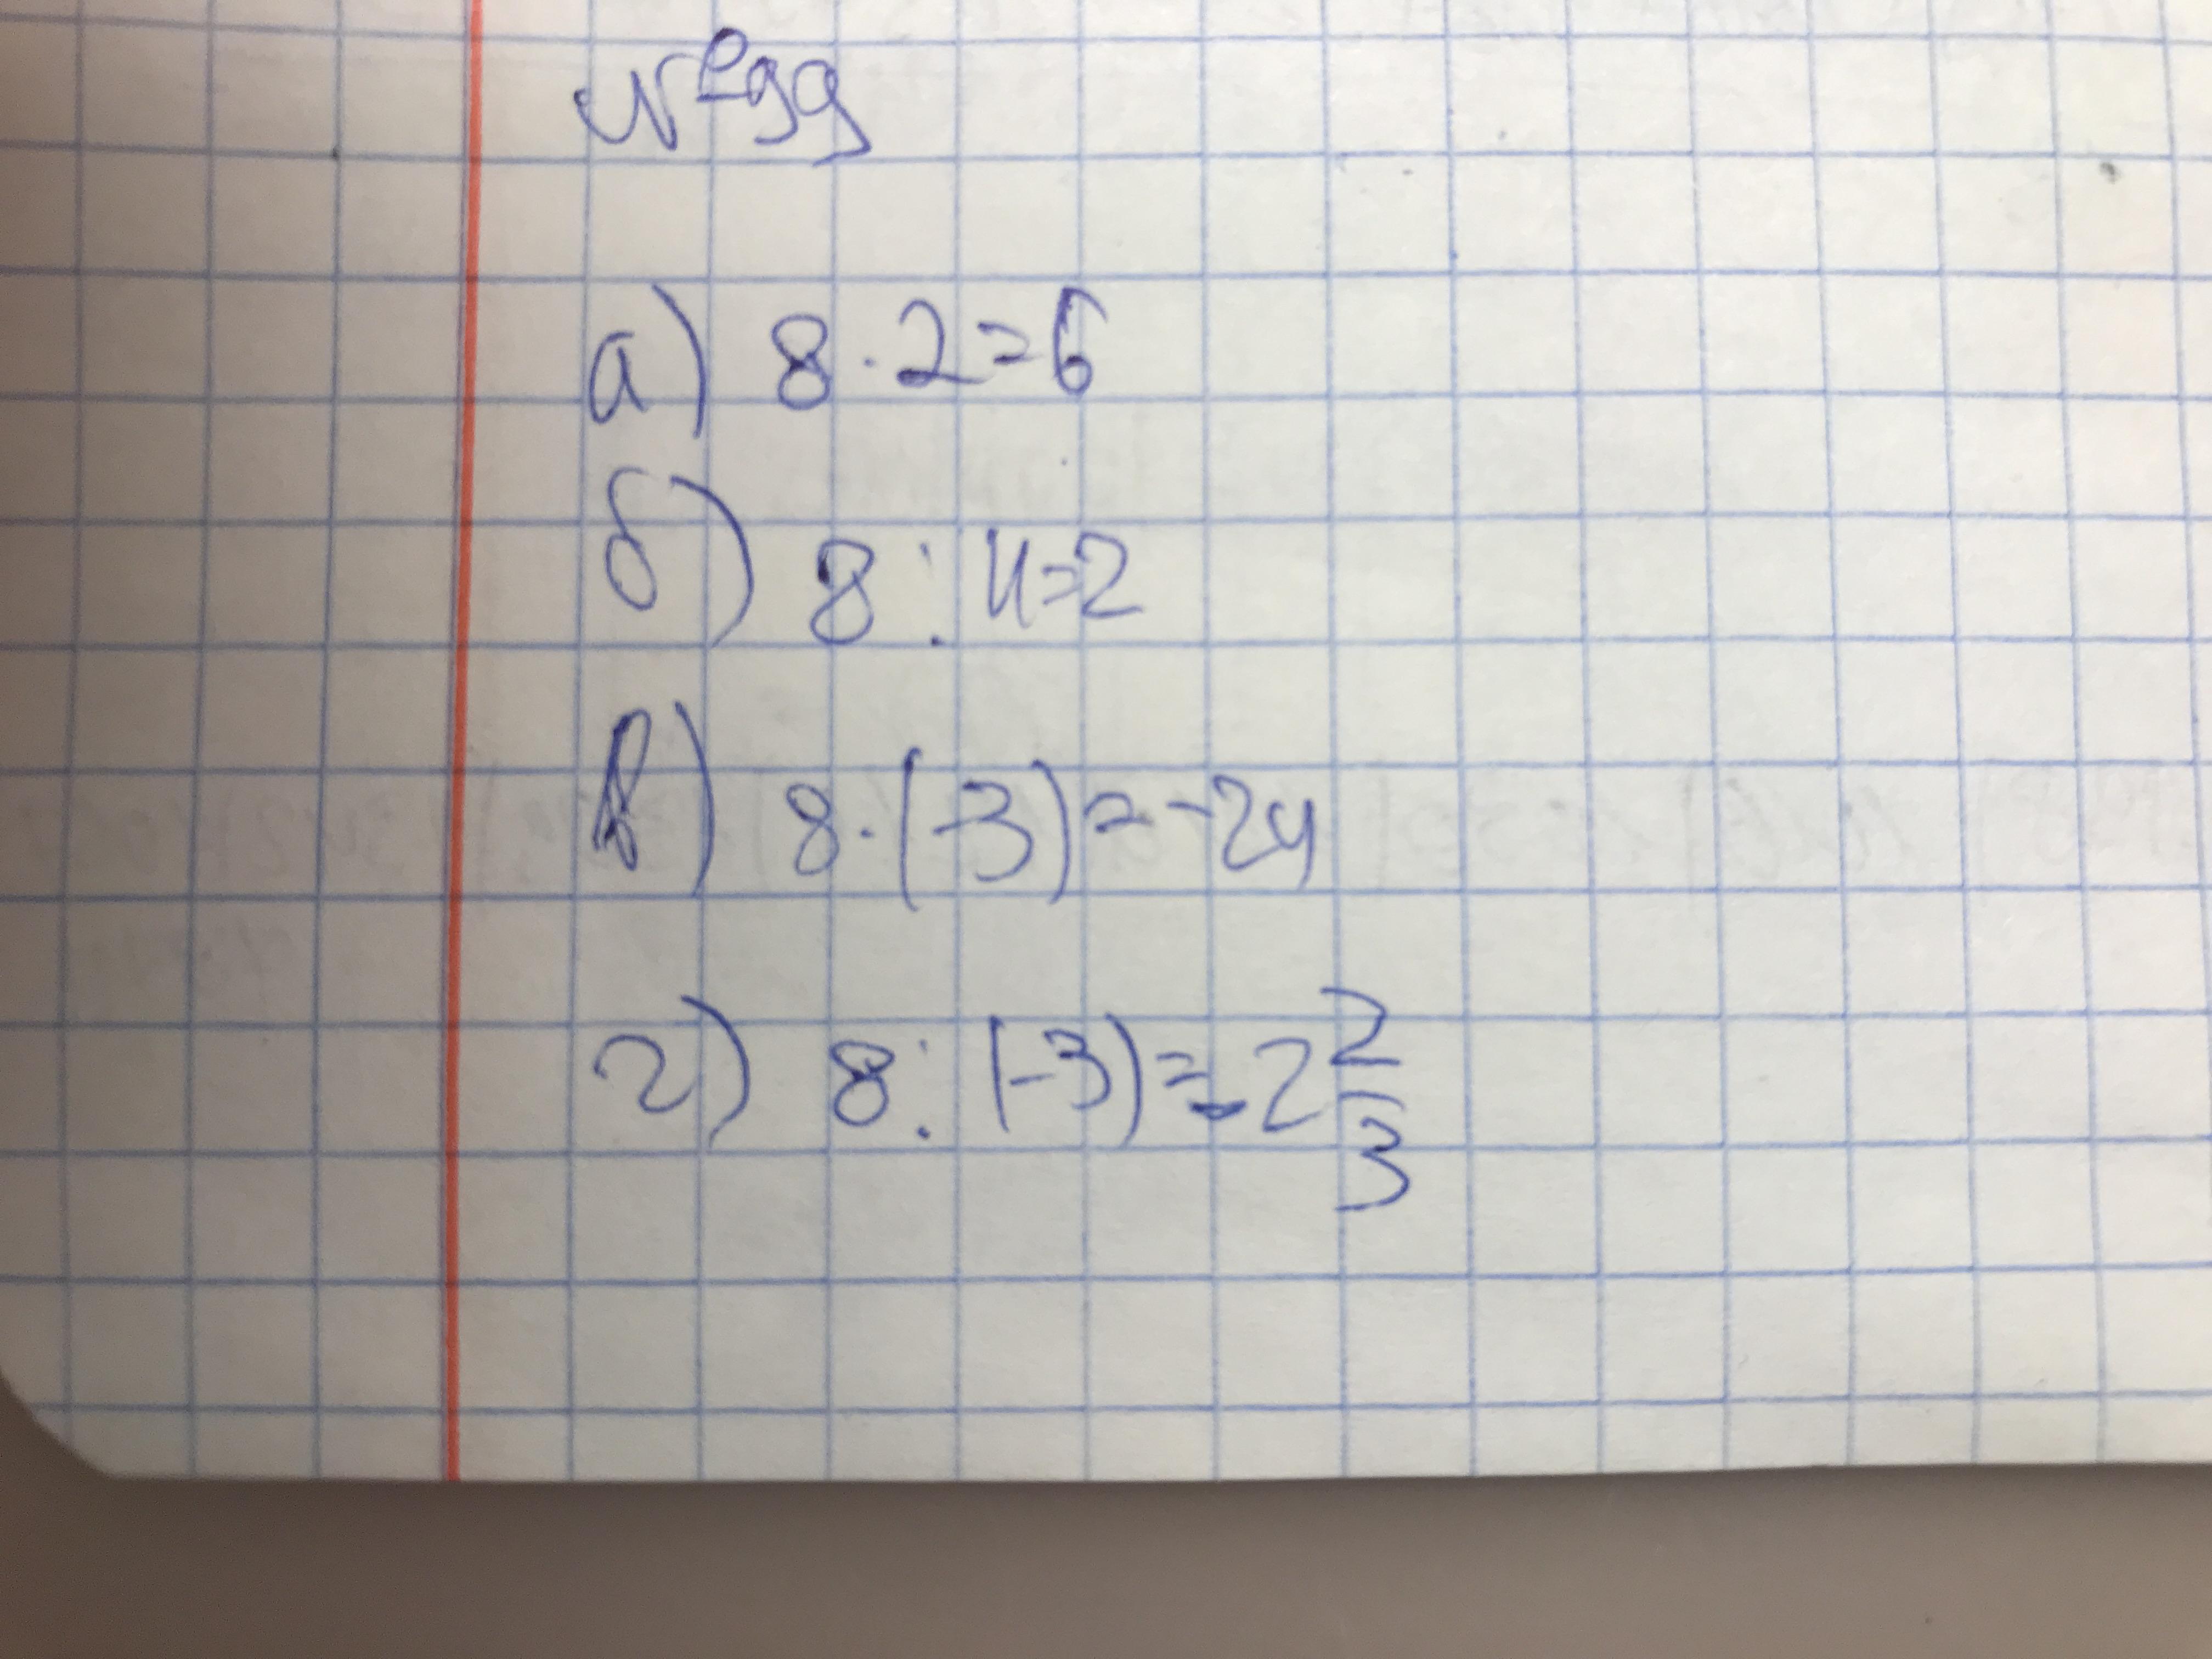 №99
а) 8 · 2 = 6
б) 8 : 4 = 2
в) 8 · (-3) = -24
г) 8 : (-3) = -2 2/3